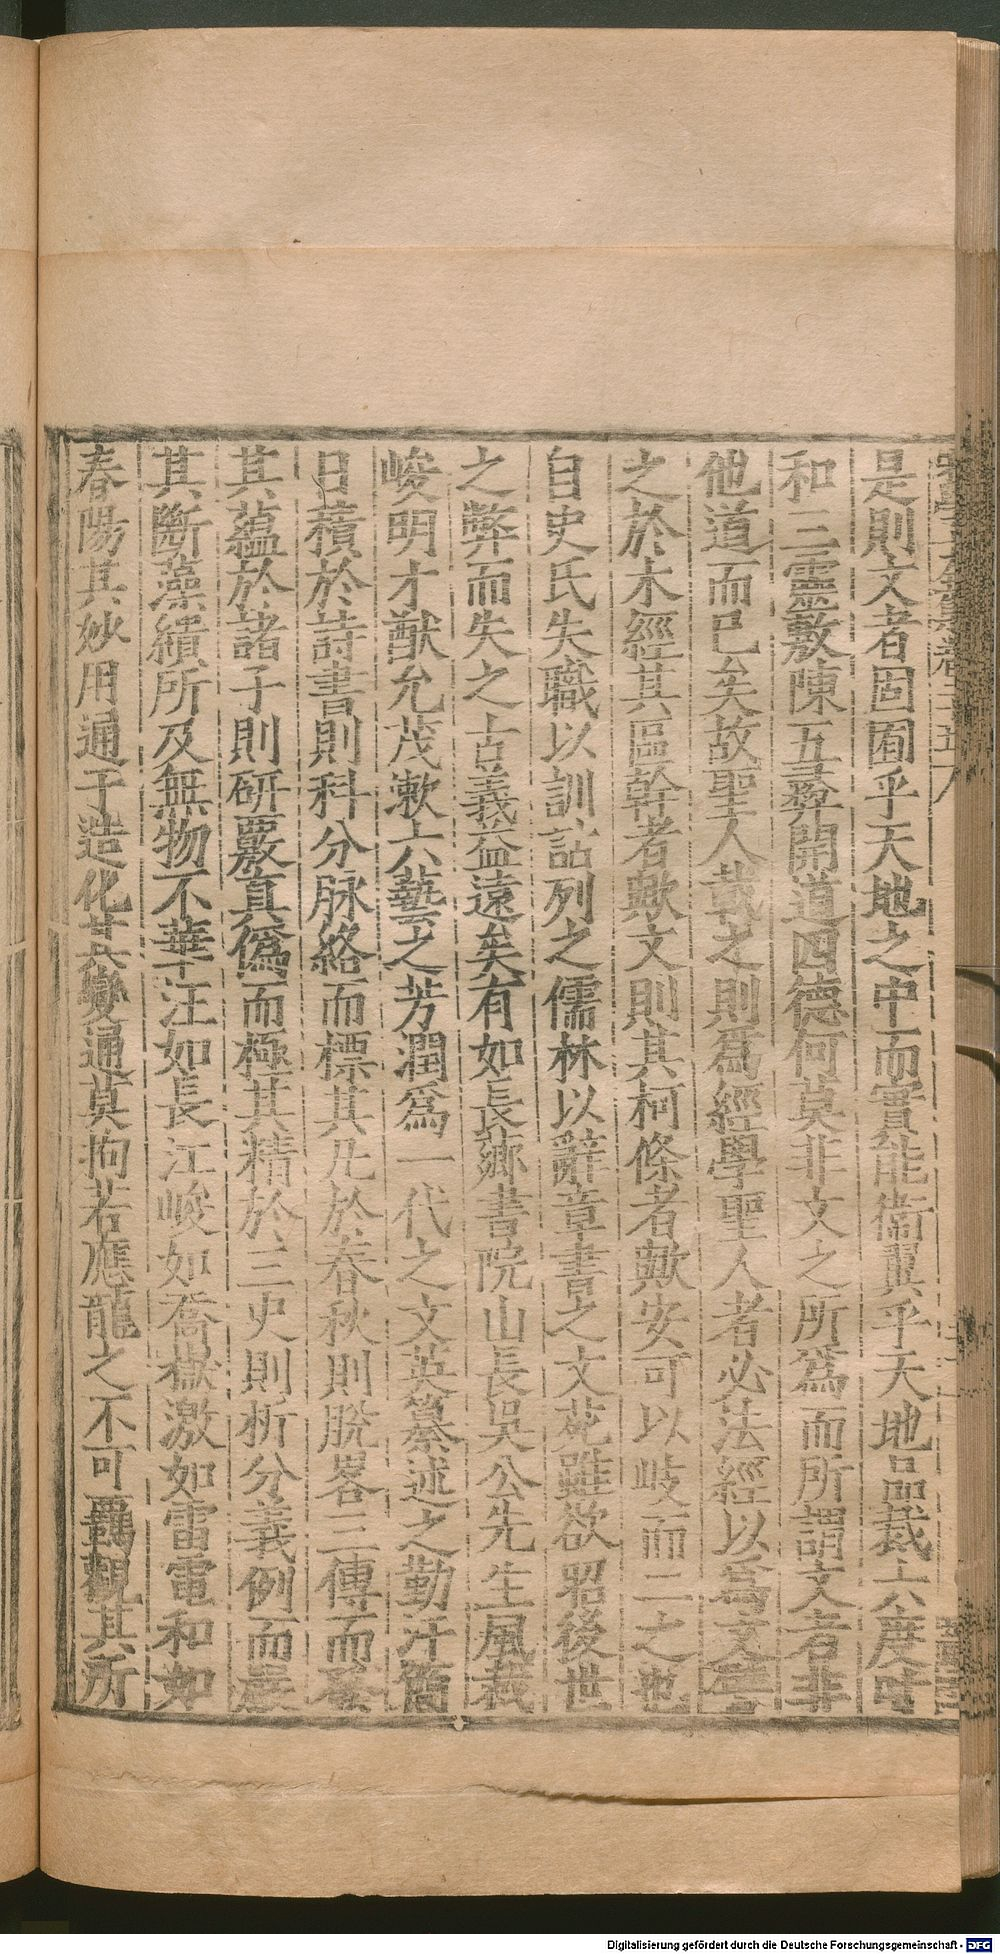 是則文者固囿乎天地之中而實能衛翼乎天地品裁六度叶
和三靈敷陳五彞開道四德何莫非文之所爲而所謂文者非
他道而已矣故聖人載之則爲經學聖人者必法經以爲文譬
之於木經其區幹者歟文則其柯條者歟安可以岐而二之也
自史氏失職以訓詁列之儒林以辭章書之文苑雖欲昭後世
之弊而失之古義益遠矣有如長薌書院山長吳公先生風裁
峻明才猷允茂漱六藝之芳潤爲一代之文英纂述之勤汗簡
日積於詩書則科分脉絡而標其凡於春秋則脫畧三傳而發
其蘊於諸子則研覈真僞而極其精於三史則析分義例而嚴
其斷藻繢所及無物不華汪如長江峻如喬嶽激如雷電和如
春陽其妙用通于造化其變通莫拘若應龍之不可羈觀其所
Digitalisierung gefördert durch die Deutsche Forschungsgemeinschaft - DFG